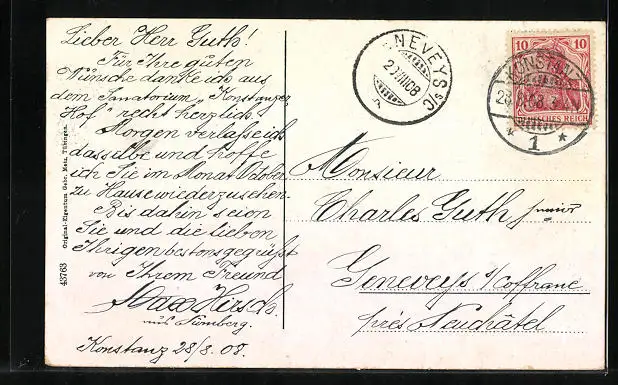 Lieber Herr Guth!
Für Ihre guten
Wünsche danke ich aus
dem Sanatorium „Konstanzer
Hof" recht herzlich.
Morgen verlasse ich
dasselbe und hoffe
ich Sie im Monat October
zu Hause wiederzusehen.
Bis dahin seien
Sie und die lieben
Ihrigen bestens gegrüßt
von Ihrem Freund
Max Hirsch
aus Nürnberg.
Konstanz 28/8. 08.
Original-Eigentum Gebr. Metz, Tübingen.
43763
GENEVEYS s/C
VIII 08
10 10
KONSTANZ
DEUTSCHES REICH
* 1 *
Monsieur
Charles Guth junior
Geneveys s/Coffrane
près Neuchâtel